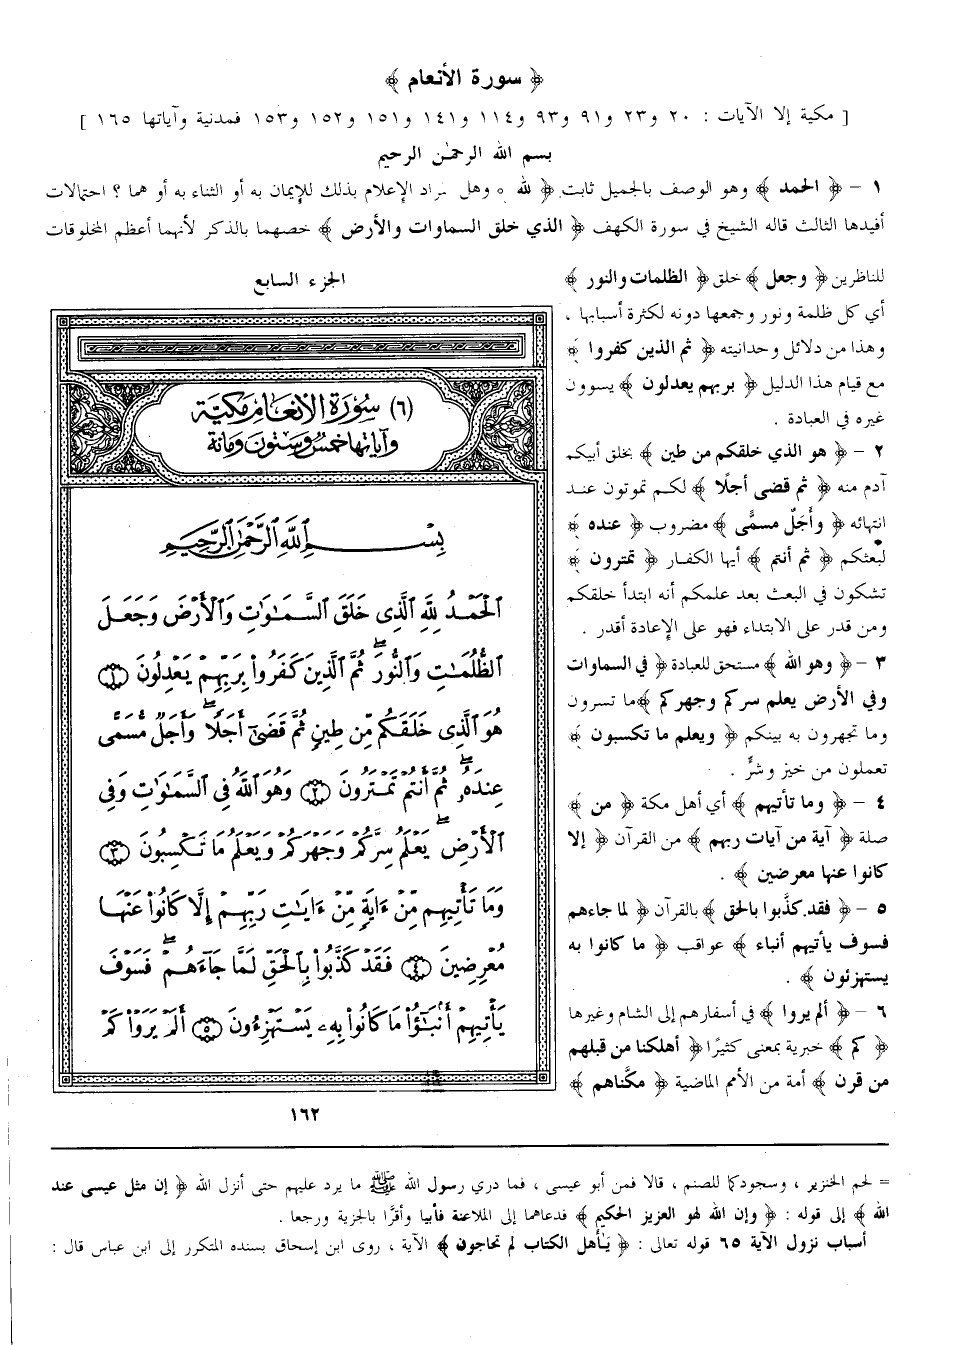 ﴿ سورة الأنعام ﴾
[ مكية إلا الآيات : ٢٠ و٢٣ و٩١ و٩٣ و١١٤ و١٤١ و١٥١ و١٥٢ و١٥٣ فمدنية وآياتها ١٦٥ ]
بسم الله الرحمٰن الرحيم
١ – ﴿ الحمد ﴾ وهو الوصف بالجميل ثابت ﴿ لله ﴾ وهل المراد الإعلام بذلك للإيمان به أو الثناء به أو هما ؟ احتمالات
أفيدها الثالث قاله الشيخ في سورة الكهف ﴿ الذي خلق السماوات والأرض ﴾ خصهما بالذكر لأنهما أعظم المخلوقات
للناظرين ﴿ وجعل ﴾ خلق ﴿ الظلمات والنور ﴾
أي كل ظلمة ونور وجمعها دونه لكثرة أسبابها ،
وهذا من دلائل وحدانيته ﴿ ثم الذين كفروا ﴾
مع قيام هذا الدليل ﴿ بربهم يعدلون ﴾ يسوون
غيره في العبادة .
٢ – ﴿ هو الذي خلقكم من طين ﴾ بخلق أبيكم
آدم منه ﴿ ثم قضى أجلًا ﴾ لكم تموتون عند
انتهائه ﴿ وأَجَلٌ مسمًّى ﴾ مضروب ﴿ عنده ﴾
لبعثكم ﴿ ثم أنتم ﴾ أيها الكفار ﴿ تمترون ﴾
تشكون في البعث بعد علمكم أنه ابتدأ خلقكم
ومن قدر على الابتداء فهو على الإعادة أقدر .
٣ – ﴿ وهو الله ﴾ مستحق للعبادة ﴿ في السماوات
وفي الأرض يعلم سركم وجهركم ﴾ ما تسرون
وما تجهرون به بينكم ﴿ ويعلم ما تكسبون ﴾
تعملون من خير وشرٍّ .
٤ – ﴿ وما تأتيهم ﴾ أي أهل مكة ﴿ من ﴾
صلة ﴿ آية من آيات ربهم ﴾ من القرآن ﴿ إلا
كانوا عنها معرضين ﴾ .
٥ – ﴿ فقد كذَّبوا بالحق ﴾ بالقرآن ﴿ لما جاءهم
فسوف يأتيهم أنباء ﴾ عواقب ﴿ ما كانوا به
يستهزئون ﴾ .
٦ – ﴿ ألم يروا ﴾ في أسفارهم إلى الشام وغيرها
﴿ كم ﴾ خبرية بمعنى كثيرًا ﴿ أهلكنا من قبلهم
من قرن ﴾ أمة من الأمم الماضية ﴿ مكَّناهم ﴾
الجزء السابع
(٦) سُورَة الأنعَام مَكيَّة
وَآيَاتها خمسٌ وَستونَ وَمائة
بِسْمِ ٱللَّهِ ٱلرَّحْمَٰنِ ٱلرَّحِيمِ
ٱلْحَمْدُ لِلَّهِ ٱلَّذِى خَلَقَ ٱلسَّمَٰوَٰتِ وَٱلْأَرْضَ وَجَعَلَ
ٱلظُّلُمَٰتِ وَٱلنُّورَ ۖ ثُمَّ ٱلَّذِينَ كَفَرُوا۟ بِرَبِّهِمْ يَعْدِلُونَ ١
هُوَ ٱلَّذِى خَلَقَكُم مِّن طِينٍ ثُمَّ قَضَىٰٓ أَجَلًا ۖ وَأَجَلٌ مُّسَمًّى
عِندَهُۥ ۖ ثُمَّ أَنتُمْ تَمْتَرُونَ ٢ وَهُوَ ٱللَّهُ فِى ٱلسَّمَٰوَٰتِ وَفِى
ٱلْأَرْضِ ۖ يَعْلَمُ سِرَّكُمْ وَجَهْرَكُمْ وَيَعْلَمُ مَا تَكْسِبُونَ ٣
وَمَا تَأْتِيهِم مِّنْ ءَايَةٍ مِّنْ ءَايَٰتِ رَبِّهِمْ إِلَّا كَانُوا۟ عَنْهَا
مُعْرِضِينَ ٤ فَقَدْ كَذَّبُوا۟ بِٱلْحَقِّ لَمَّا جَآءَهُمْ ۖ فَسَوْفَ
يَأْتِيهِمْ أَنۢبَٰٓؤُا۟ مَا كَانُوا۟ بِهِۦ يَسْتَهْزِءُونَ ٥ أَلَمْ يَرَوْا۟ كَمْ
١٦٢
= لحم الخنزير ، وسجودكما للصنم ، قالا فمن أبو عيسى ، فما درى رسول الله ﷺ ما يرد عليهم حتى أنزل الله ﴿ إن مثل عيسى عند
الله ﴾ إلى قوله : ﴿ وإن الله لهو العزيز الحكيم ﴾ فدعاهما إلى الملاعنة فأبيا وأقرَّا بالجزية ورجعا .
أسباب نزول الآية ٦٥ قوله تعالى : ﴿ يَٰأهل الكتاب لم تحاجون ﴾ الآية ، روى ابن إسحاق بسنده المتكرر إلى ابن عباس قال :